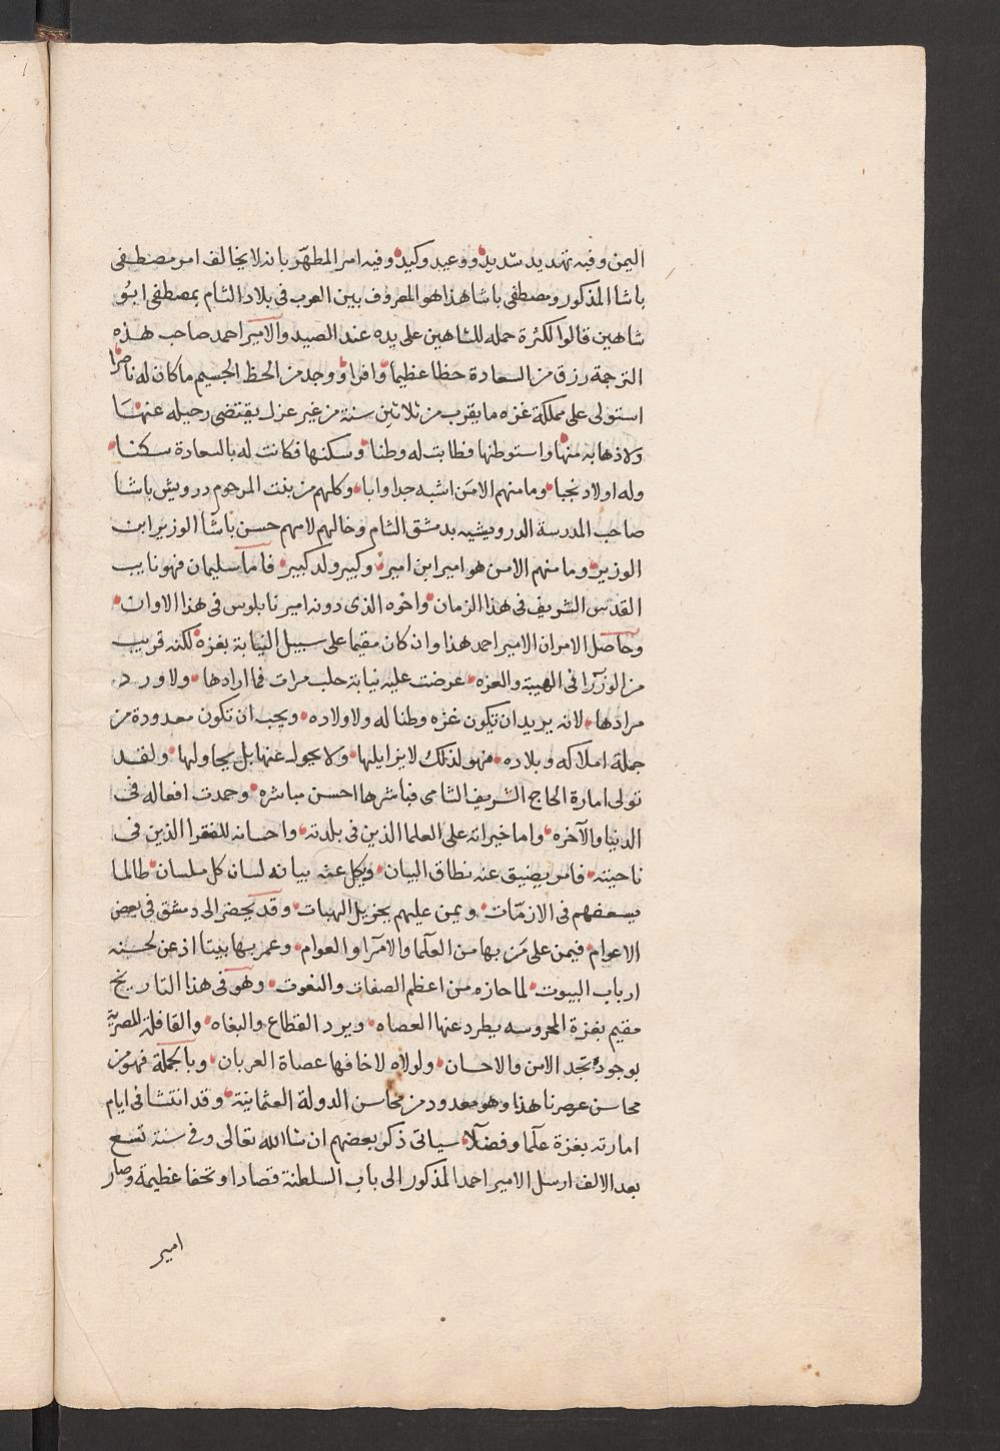 اليمن وفيه تهديد شديد ووعيد وكيد وفيه امر المطهّر بانه لا يخالف امر مصطفى
باشا المذكور ومصطفى باشا هذا هو المعروف بين العرب فى بلاد الشام بمصطفى ابو
شاهين قالوا لكثرة حمله للشاهين على يده عند الصيد والامير احمد صاحب هذه
الترجمة رزق من السعادة حظا عظيما وافرا ووجد من الحظ الجسيم ما كان له ناصرا
استولى على مملكة غزه ما يقرب من ثلاثين سنة من غير عزل يقتضى رحيله عنها
ولا ذهابه منها واستوطنها فطابت له وطنا وسكنها فكانت له بالسعادة سكنا
وله اولاد نجبا وما منهم الا من اشبه جدا وابا وكلهم من بنت المرحوم درويش باشا
صاحب المدرسة الدرويشيه بدمشق الشام وخالهم لامهم حسن باشا الوزير ابن
الوزير وما منهم الا من هو امير ابن امير وكبير ولد كبير فاما سليمان فهو نايب
القدس الشريف فى هذا الزمان واخوه الذى دونه امير نابلوس فى هذا الاوان
وحاصل الامر ان الامير احمد هذا وان كان مقيما على سبيل النيابة بغزه لكنه قريب
من الوزرا فى الهيبة والعزه عرضت عليه نيابة حلب مرات فما ارادها ولا ورد
مرادها لانه يريد ان تكون غزه وطنا له ولاولاده ويحب ان تكون معدودة من
جملة املاكه وبلاده فهو لذلك لا يزايلها ولا يحول عنها بل يحاولها ولقد
تولى امارة الحاج الشريف الشامى فباشرها احسن مباشره وحمدت افعاله فى
الدنيا والآخره واما خيراته على العلما الذين فى بلدته واحسانه للفقرا الذين فى
ناحيته فامر يضيق عنه نطاق البيان ويكل عنه بيانه لسان كل ملسان طالما
يسعفهم فى الازمّات ويمن عليهم بجزيل الهبات وقد يحضر الى دمشق فى بعض
الاعوام فيمن على مَن بها من العلما والامرا والعوام وعمر بها بيتا اذعن لحسنه
ارباب البيوت لما حازه من اعظم الصفات والنعوت وهو فى هذا التاريخ
مقيم بغزة المحروسه يطرد عنها العصاه ويرد القطاع والبغاه والقافلة المصرية
بوجوده تجد الامن والاحسان ولولاه لاخافها عصاة العربان وبالجملة فهو من
محاسن عصرنا هذا وهو معدود من محاسن الدولة العثمانية وقد انتشا فى ايام
امارته بغزة علما وفضلا سياتى ذكر بعضهم ان شا الله تعالى وفى سنة تسع
بعد الالف ارسل الامير احمد المذكور الى باب السلطنة قصادا وتحفا عظيمة وصار
امير